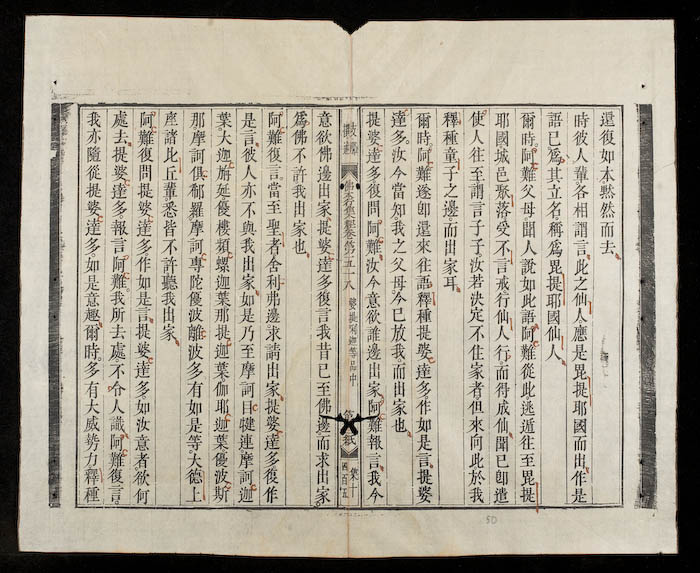 還復如本黙然而去
時彼人輩各相謂言。此之仙人應是毘提耶國而出。作是
語已爲其立名稱爲毘提耶國仙人
爾時。阿難父母聞人說如此語阿難從此逃遁往至毘提
耶國城邑聚落受不言戒行仙人行而得成仙聞已即遣
使人往至謂言子子。汝若決定不住家者但來向此於我
釋種童子之邊。而出家耳
爾時阿難遂即還來往語釋種提婆達多作如是言。提婆
達多。汝今當知我之父母今已放我而出家也
提婆達多復問阿難。汝今意欲誰邊出家阿難報言。我今
佛本行集經卷第五十八 婆提唎迦等品中 集十
四百五
意欲佛邊出家提婆達多復言我昔已至佛邊而求出家。
爲佛不許我出家也
阿難復言。當至聖者舍利弗邊求請出家提婆達多復作
是言。彼人亦不與我出家如是乃至摩訶目犍連摩訶迦
葉。大迦旃延優樓頻螺迦葉那提迦葉伽耶迦葉優波斯
那摩訶俱郗羅摩訶專陀優波離波多有如是等。大德上
座諸比丘輩。悉皆不許聽我出家
阿難復問提婆達多作如是言提婆達多如汝意者欲何
處去提婆達多報言阿難。我所去處。不令人識阿難復言。
我亦隨從提婆達多。如是意趣。爾時。多有大威勢力釋種
50